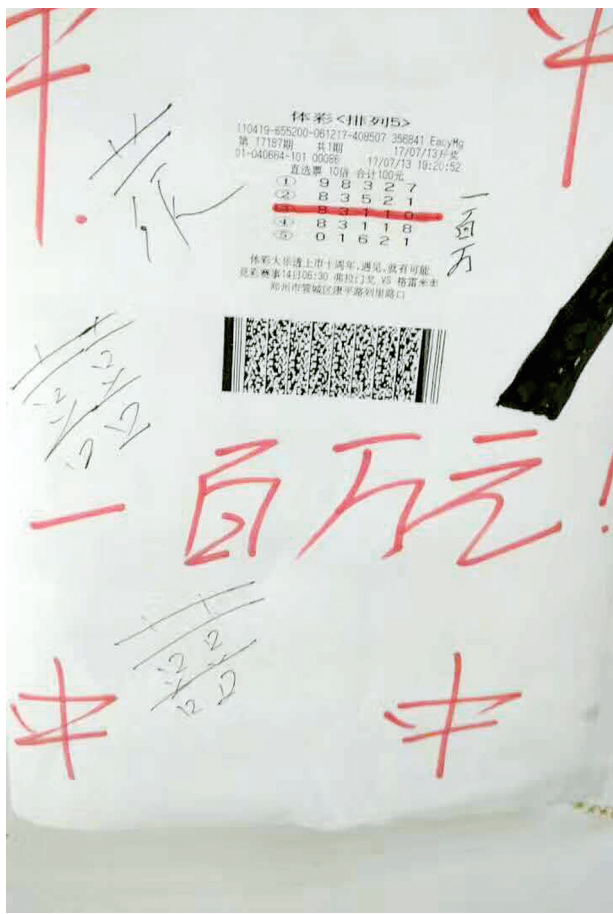 中 中
恭
体彩<排列5>
110419-655200-061217-408507 356841 EacyMg
第 17187期 共1期 17/07/13开奖
01-040664-101 00086 17/07/13 19:20:52
直选票 10倍 合计100元
① 9 8 3 2 7
② 8 3 5 2 1
③ 8 3 1 1 0
④ 8 3 1 1 8
⑤ 0 1 6 2 1
一百万
体彩大乐透上市十周年,遇见,就有可能
竞彩赛事14日06:30 弗拉门戈 VS 格雷米奥
郑州市管城区
喜
一百万元!
喜
中 中